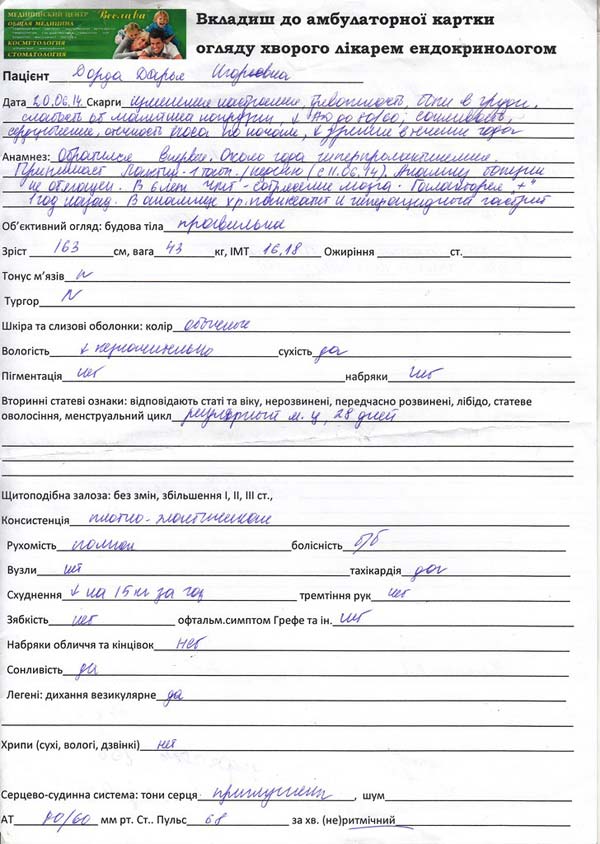 МЕДИЦИНСКИЙ ЦЕНТР Веслава
ОБЩАЯ МЕДИЦИНА
КОСМЕТОЛОГИЯ
СТОМАТОЛОГИЯ
Вкладиш до амбулаторної картки
огляду хворого лікарем ендокринологом
Пацієнт Дарья Игоревна
Дата 20.06.14 Скарги изменение настроения, тревожность, боли в груди,
слабость от малейшей нагрузки, ↓ АД до 80/60; сонливость,
сердцебиение, по ночам, ↓ в течение года
Анамнез: Обратился впервые. Около года гиперпролактинемия.
Принимает 1 табл./неделю (с 11.06.14). Анамнез
не отягощен. В 6 лет ЧМТ - сотрясение мозга. Галакторея "+"
1 год назад. В анамнезе хр. панкреатит и гиперацидный гастрит
Об'єктивний огляд: будова тіла правильна
Зріст 163 см, вага 43 кг, ІМТ 16,18 Ожиріння ст.
Тонус м'язів N
Тургор N
Шкіра та слизові оболонки: колір обычные
Вологість ↓ сухість да
Пігментація нет набряки нет
Вторинні статеві ознаки: відповідають статі та віку, нерозвинені, передчасно розвинені, лібідо, статеве
оволосіння, менструальний цикл регулярный м.ц. 28 дней
Щитоподібна залоза: без змін, збільшення І, ІІ, ІІІ ст.,
Консистенція плотно-эластическая
Рухомість полная болісність б/б
Вузли нет тахікардія да
Схуднення ↓ на 15 кг за год тремтіння рук нет
Зябкість нет офтальм.симптом Грефе та ін. нет
Набряки обличчя та кінцівок нет
Сонливість да
Легені: дихання везикулярне да
Хрипи (сухі, вологі, дзвінкі) нет
Серцево-судинна система: тони серця приглушены, шум
АТ 80/60 мм рт. Ст.. Пульс 68 за хв. (не)ритмічний